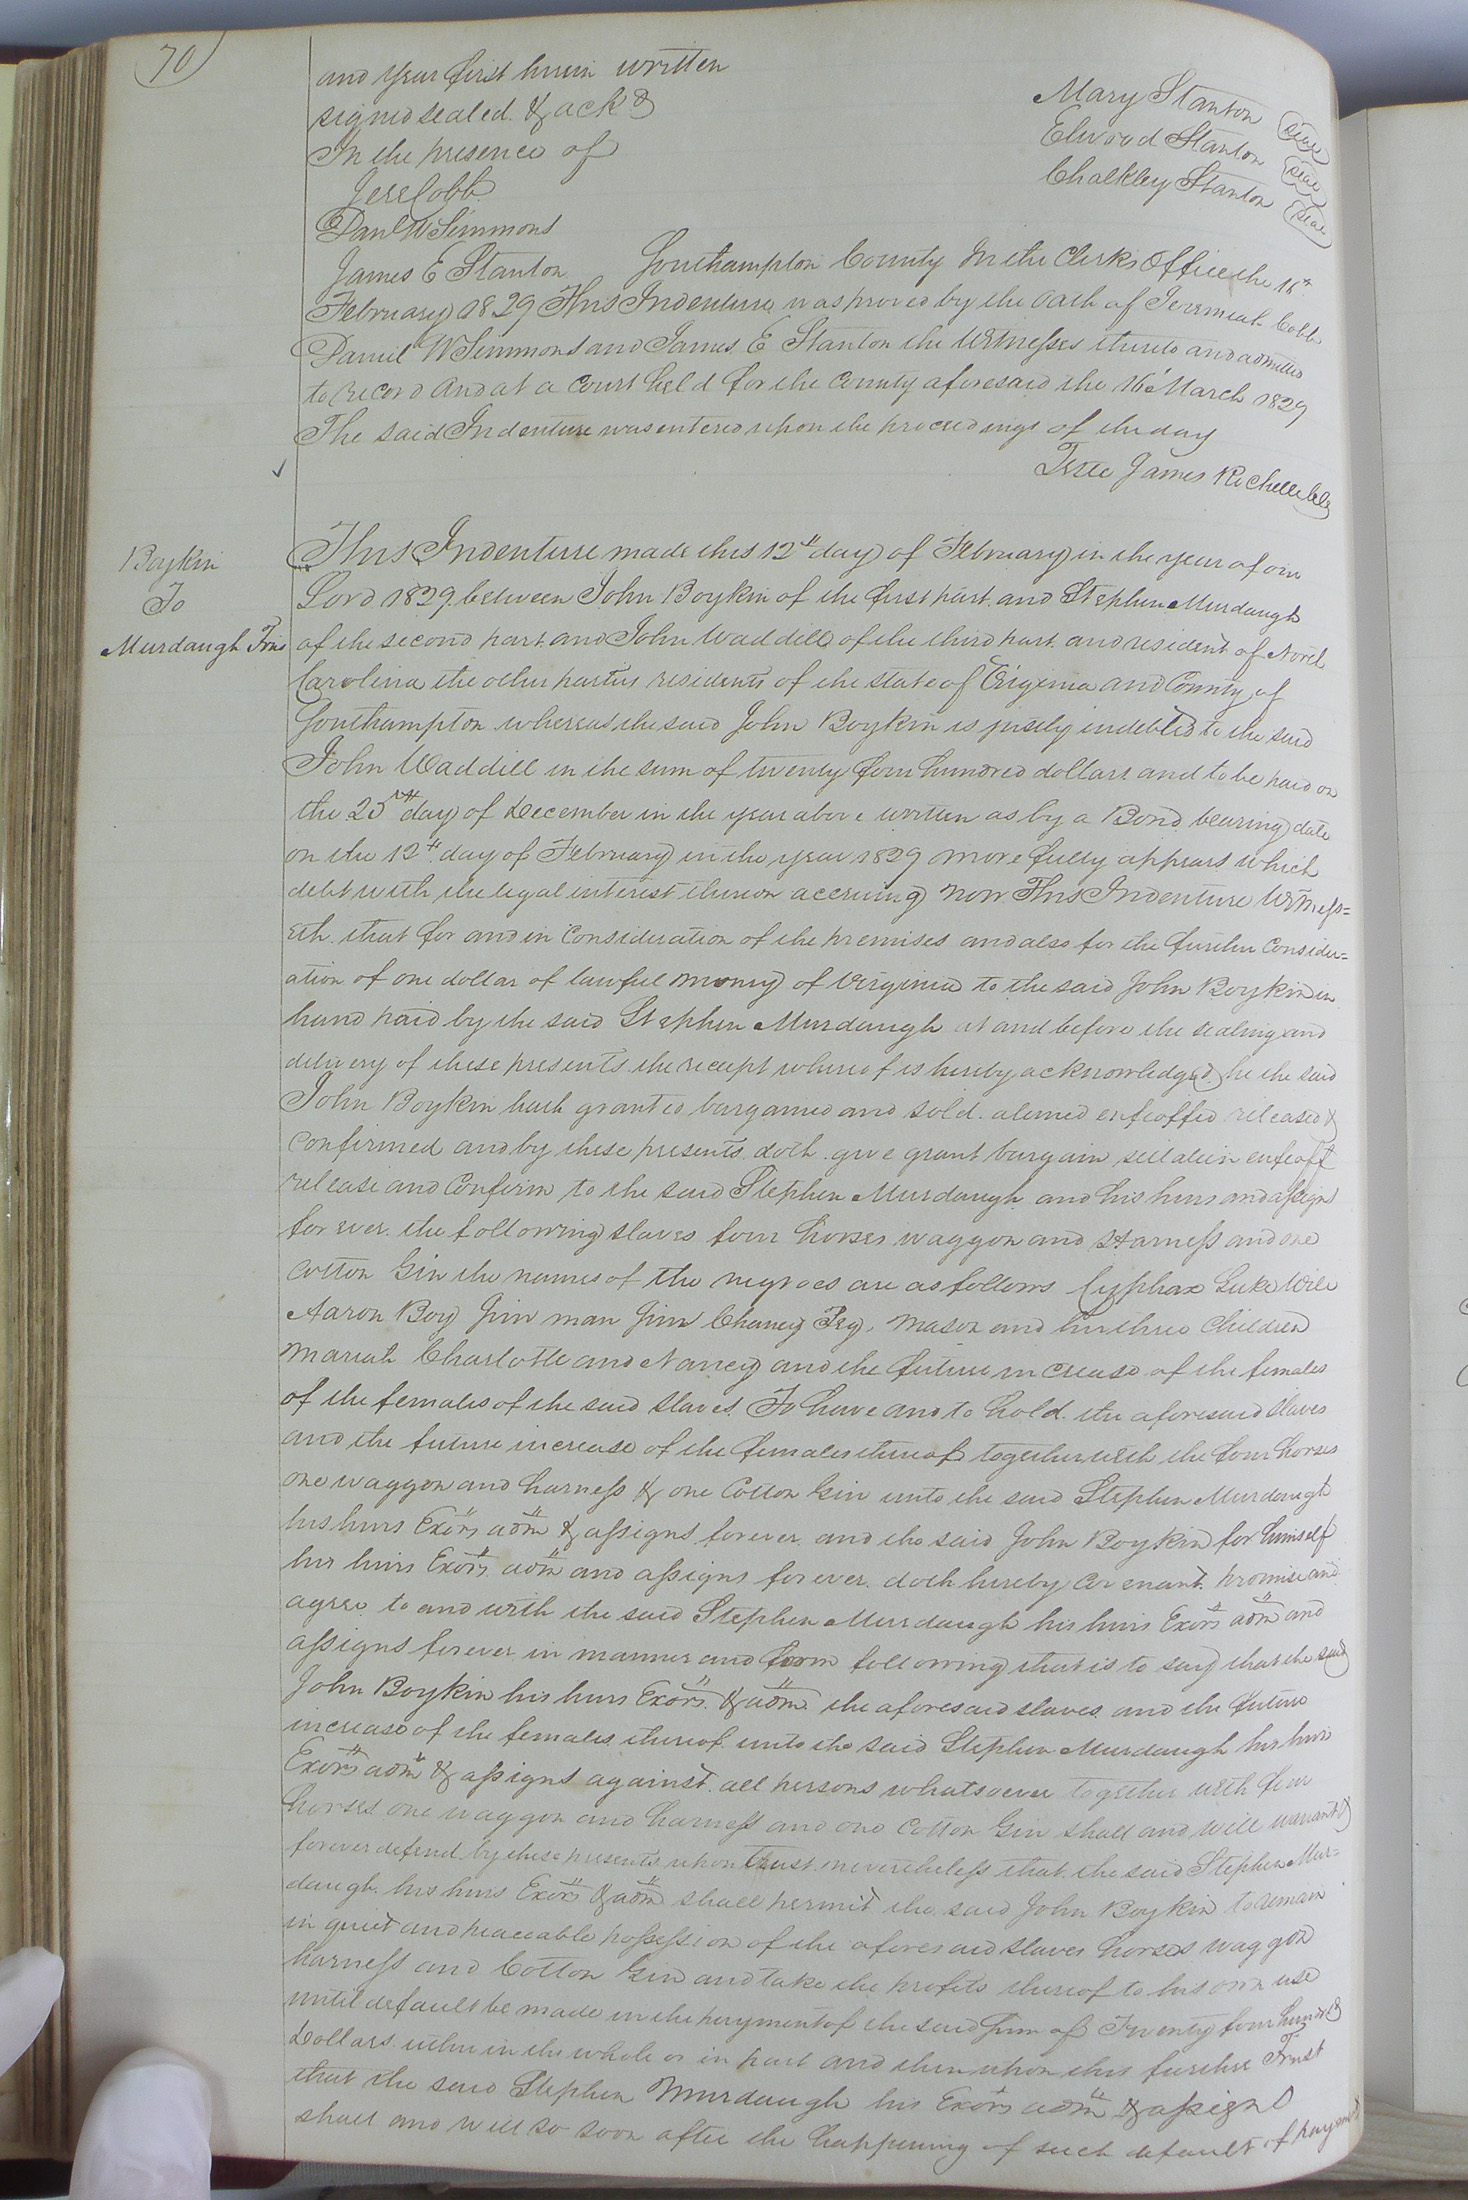 70
and year first herein written
signed sealed & ackd
In the presence of
Jere Cobb
Danl W Simmons
Mary Stanton seal
Elwood Stanton seal
Chalkley Stanton seal
James E Stanton Southampton County In the Clerks Office the 16th
February 1829 This Indenture was proved by the Oath of Jeremiah Cobb
Daniel W Simmons and James E Stanton the Witnesses thereto and admitted
to record And at a Court held for the County aforesaid the 16 March 1829
The said Indenture was entered upon the proceedings of the day
Teste James Rochelle Clk
Boykin
To
Murdaugh Trus
This Indenture made this 12th day of February in the year of our
Lord 1829 between John Boykin of the first part and Stephen Murdaugh
of the second part and John Waddill of the third part and resident of North
Carolina the other parties residents of the state of Virginia and County of
Southampton whereas the said John Boykin is justly indebted to the said
John Waddill in the sum of twenty four hundred dollars and to be paid on
the 25th day of December in the year above written as by a Bond bearing date
on the 12th day of February in the year 1829 more fully appears which
debt with the legal interest thereon accruing now This Indenture Witness=
eth that for and in Consideration of the premises and also for the further Consider=
ation of one dollar of lawful money of Virginia to the said John Boykin in
hand paid by the said Stephen Murdaugh at and before the sealing and
delivery of these presents the receipt whereof is hereby acknowledged he the said
John Boykin hath granted bargained and sold aliened enfeoffed released &
Confirmed and by these presents doth give grant bargain sell alien enfeoff
release and Confirm to the said Stephen Murdaugh and his heirs and assigns
for ever the following slaves four horses waggon and Harness and one
Cotton Gin the names of the negroes are as follows Cyphax Luke Will
Aaron Boy Jim man Jim Chaney Fey, Mason and her three Children
Mariah Charlotte and Nancy and the future increase of the females
of the females of the said slaves To have and to hold the aforesaid slaves
and the future increase of the females thereof together with the four horses
one waggon and harness & one Cotton Gin unto the said Stephen Murdaugh
his heirs Exors adm & assigns forever and the said John Boykin for himself
his heirs Exors adm and assigns forever doth hereby Covenant promise and
agree to and with the said Stephen Murdaugh his heirs Exors adm and
assigns forever in manner and form following that is to say that the said
John Boykin his heirs Exors & adm the aforesaid slaves and the future
increase of the females thereof unto the said Stephen Murdaugh his heirs
Exors adm & assigns against all persons whatsoever together with four
horses one waggon and harness and one Cotton Gin shall and will warrant &
forever defend by these presents upon trust nevertheless that the said Stephen Mur=
daugh his heirs Exors & adm shall permit the said John Boykin to remain
in quiet and peaceable possession of the aforesaid slaves horses waggon
harness and Cotton Gin and take the profits thereof to his own use
until default be made in the payment of the said sum of Twenty four hundred
Dollars either in the whole or in part and then upon this further Trust
that the said Stephen Murdaugh his Exors adm & assigns
shall and will so soon after the happening of such default of payment